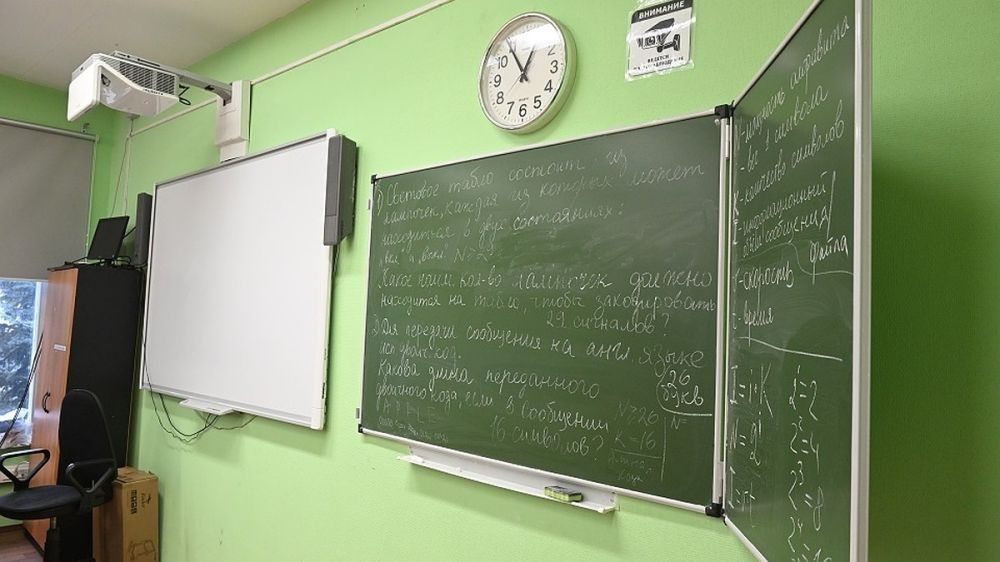 ВНИМАНИЕ
ВЕДЕТСЯ
1) Световое табло состоит из
лампочек, каждая из которых может
находиться в двух состояниях:
"вкл" и "выкл". N=2
Какое наим. кол-во лампочек должно
находится на табло, чтобы закодировать
29 сигналов?
2) Для передачи сообщения на англ. языке
исп. двоич. код.
26 букв
Какова длина переданного
двоичного кода, если в сообщении
16 символов?
APPLE
N≥26
K=16
длина
кода
N=
N-мощность алфавита
i-вес 1 символа
K-количество символов
I-информационный
объём сообщения/
файла
V-скорость
t-время
I=i·K
N=2
I=V·t
2¹=2
2²=4
2³=8
2⁴=16
12 1 2 3 4 5 6 7 8 9 10 11